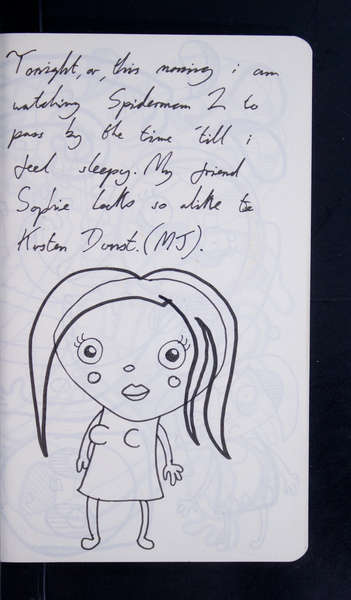 Tonight, or, this morning i am
watching Spiderman 2 to
pass by the time 'till i
feel sleepy. My friend
Sophie looks so alike to
Kirsten Dunst. (MJ).